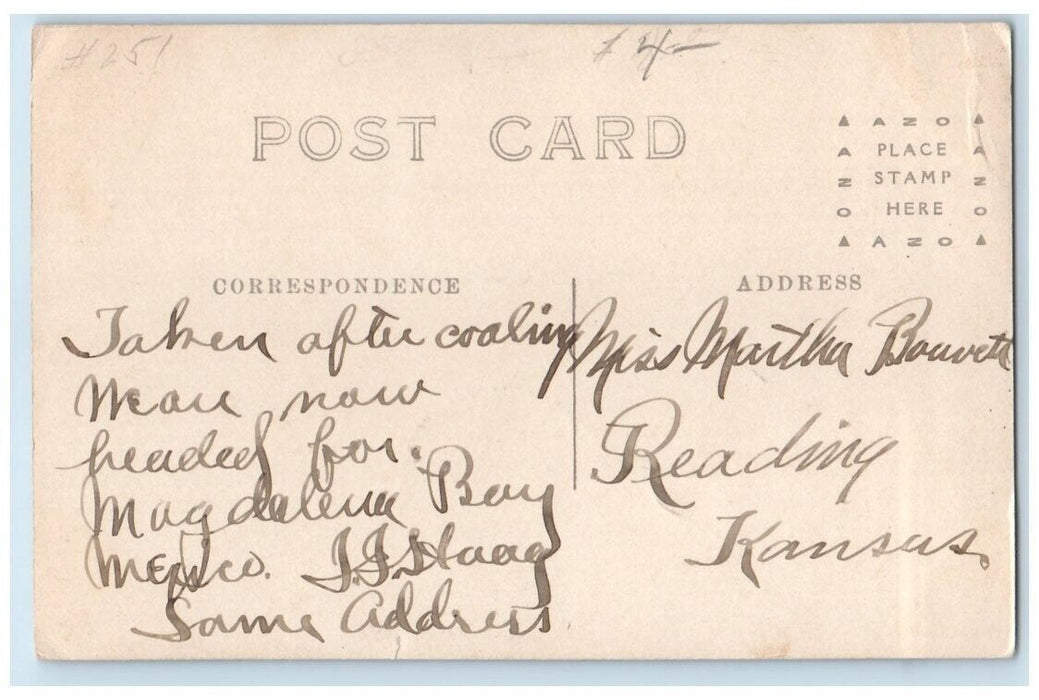 #251
POST CARD
▲ A Z O ▲
A PLACE A
Z STAMP Z
O HERE O
▲ A Z O ▲
CORRESPONDENCE
Taken after coaling
We are now
headed for.
Magdalena Bay
Mexico. J.J. Haag
Same Address.
ADDRESS
Miss Martha
Reading
Kansas.